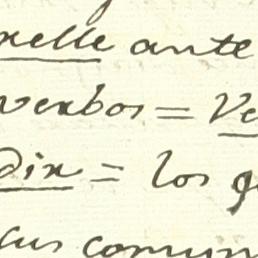 relle ante
verbos = Ve
dix = los q
sus comun